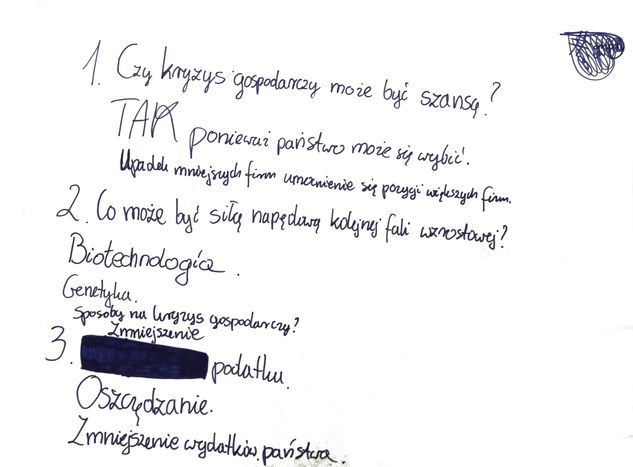 1. Czy kryzys gospodarczy może być szansą?
TAK ponieważ państwo może się wybić.
Upadek mniejszych firm umocnienie się pozycji większych firm.
2. Co może być siłą napędową kolejnej fali wzrostowej?
Biotechnologia.
Genetyka.
Sposoby na kryzys gospodarczy?
Zmniejszenie
3. podatku.
Oszczędzanie.
Zmniejszenie wydatków państwa.